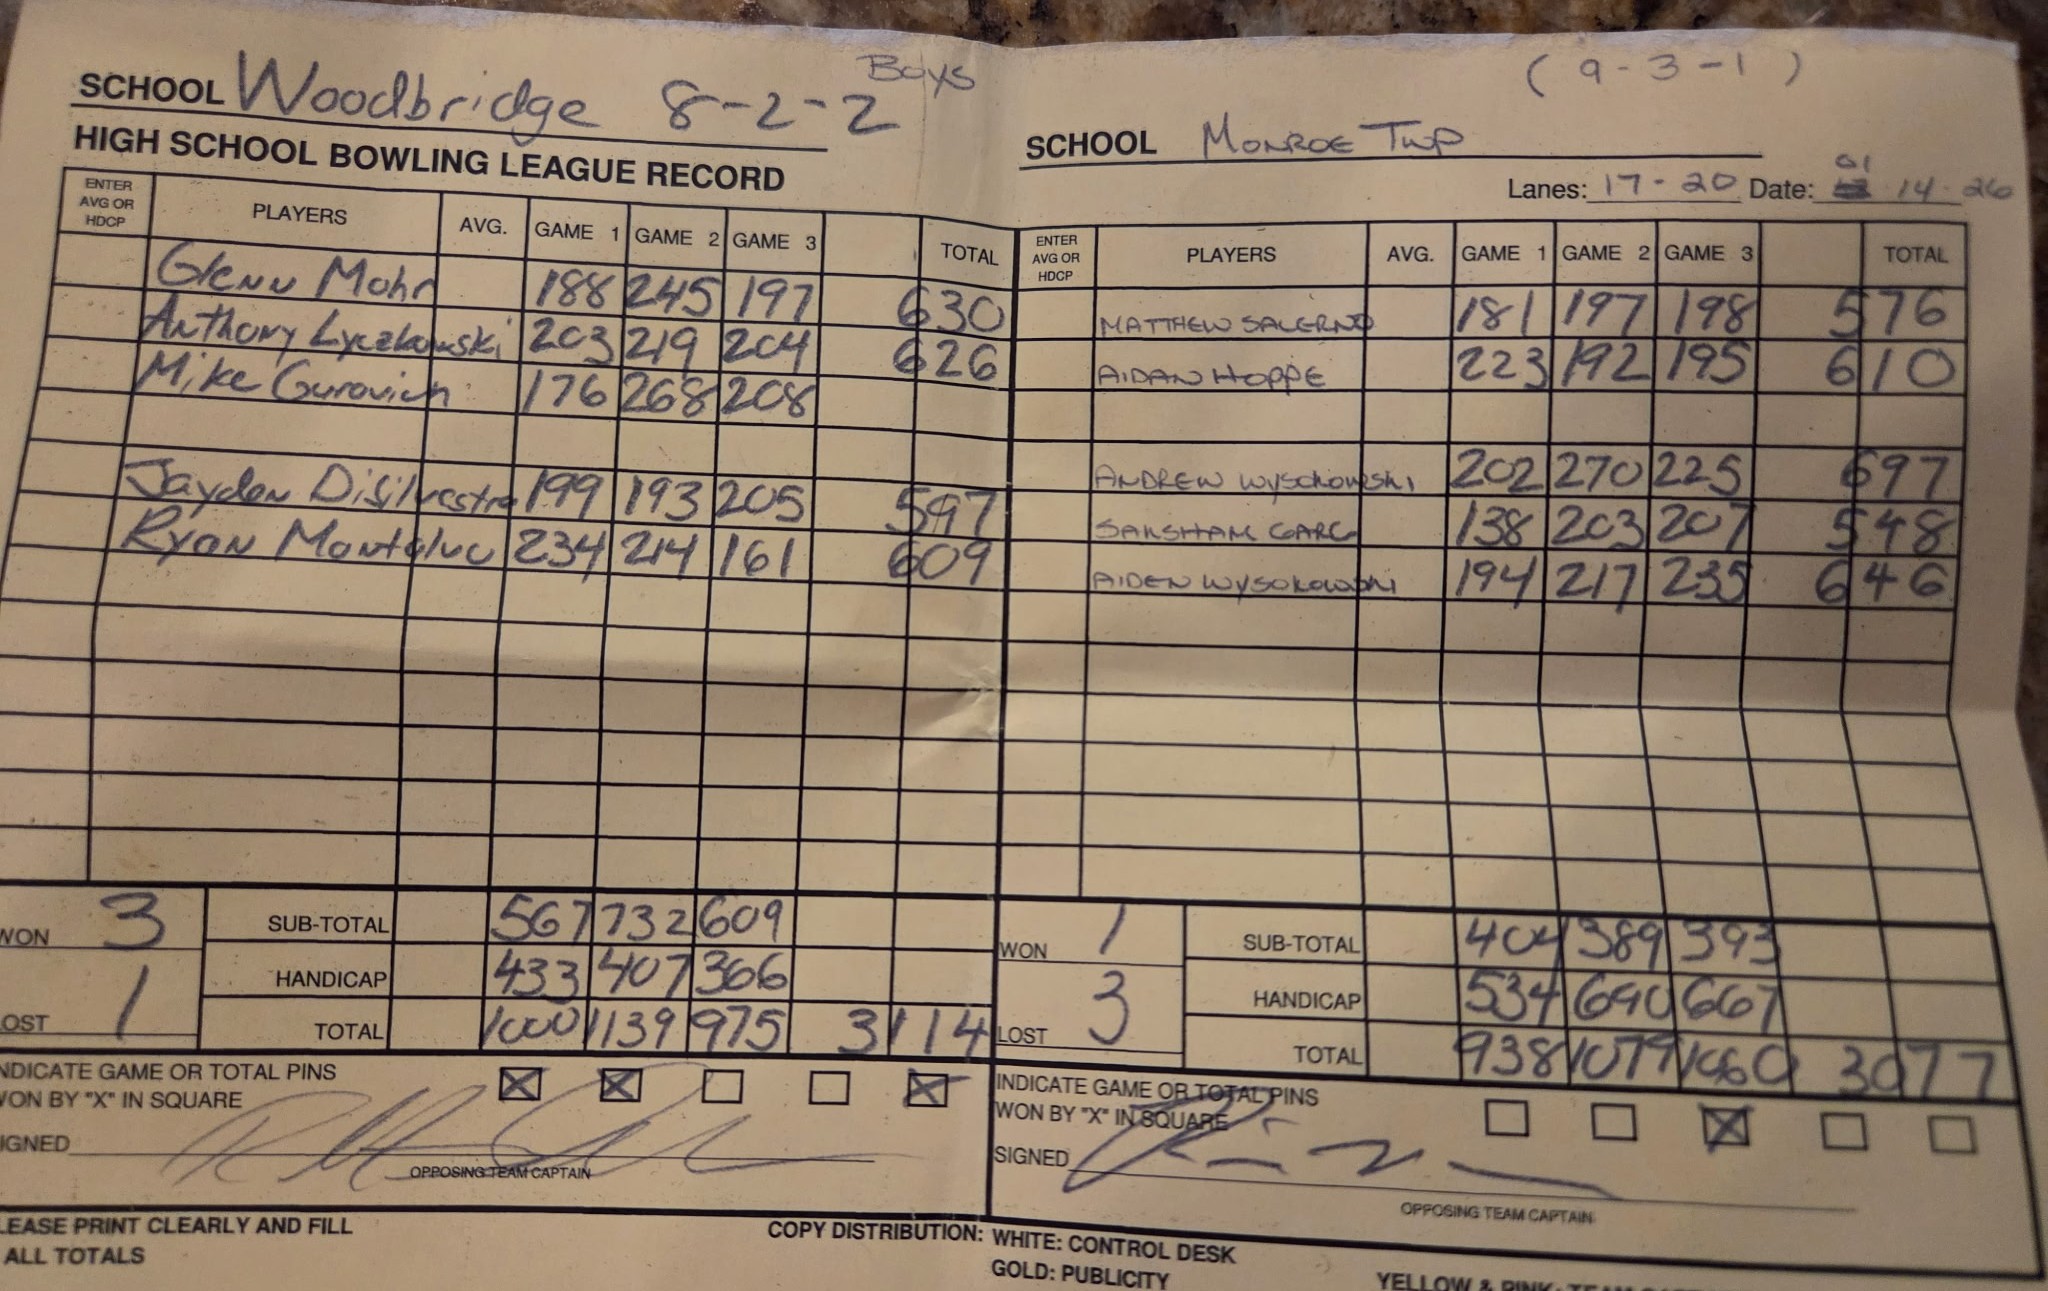 Boys (9-3-1)
SCHOOL Woodbridge 8-2-2
SCHOOL MONROE TWP
HIGH SCHOOL BOWLING LEAGUE RECORD
Lanes: 17-20 Date: 01 14-26
ENTER AVG OR HDCP PLAYERS AVG. GAME 1 GAME 2 GAME 3 TOTAL
Glenn Mohr 188 245 197 630
Anthony Lyczkowski 203 219 204 626
Mike Gurovich 176 268 208
Jayden Disilvestro 199 193 205 597
Ryan Montalvo 234 214 161 609
WON 3 SUB-TOTAL 567 732 609
HANDICAP 433 407 366
LOST 1 TOTAL 1000 1139 975 3114
INDICATE GAME OR TOTAL PINS
WON BY "X" IN SQUARE
SIGNED
OPPOSING TEAM CAPTAIN
ENTER AVG OR HDCP PLAYERS AVG. GAME 1 GAME 2 GAME 3 TOTAL
MATTHEW SALERNO 181 197 198 576
AIDAN HOPPE 223 192 195 610
ANDREW WYSOKOWSKI 202 270 225 697
SAKSHAM GARG 138 203 207 548
AIDEN WYSOKOWSKI 194 217 235 646
WON 1 SUB-TOTAL 404 389 393
HANDICAP 534 690 667
LOST 3 TOTAL 938 1079 1060 3077
INDICATE GAME OR TOTAL PINS
WON BY "X" IN SQUARE
SIGNED
OPPOSING TEAM CAPTAIN
LEASE PRINT CLEARLY AND FILL
ALL TOTALS
COPY DISTRIBUTION: WHITE: CONTROL DESK
GOLD: PUBLICITY
YELLOW & PINK: TEAM